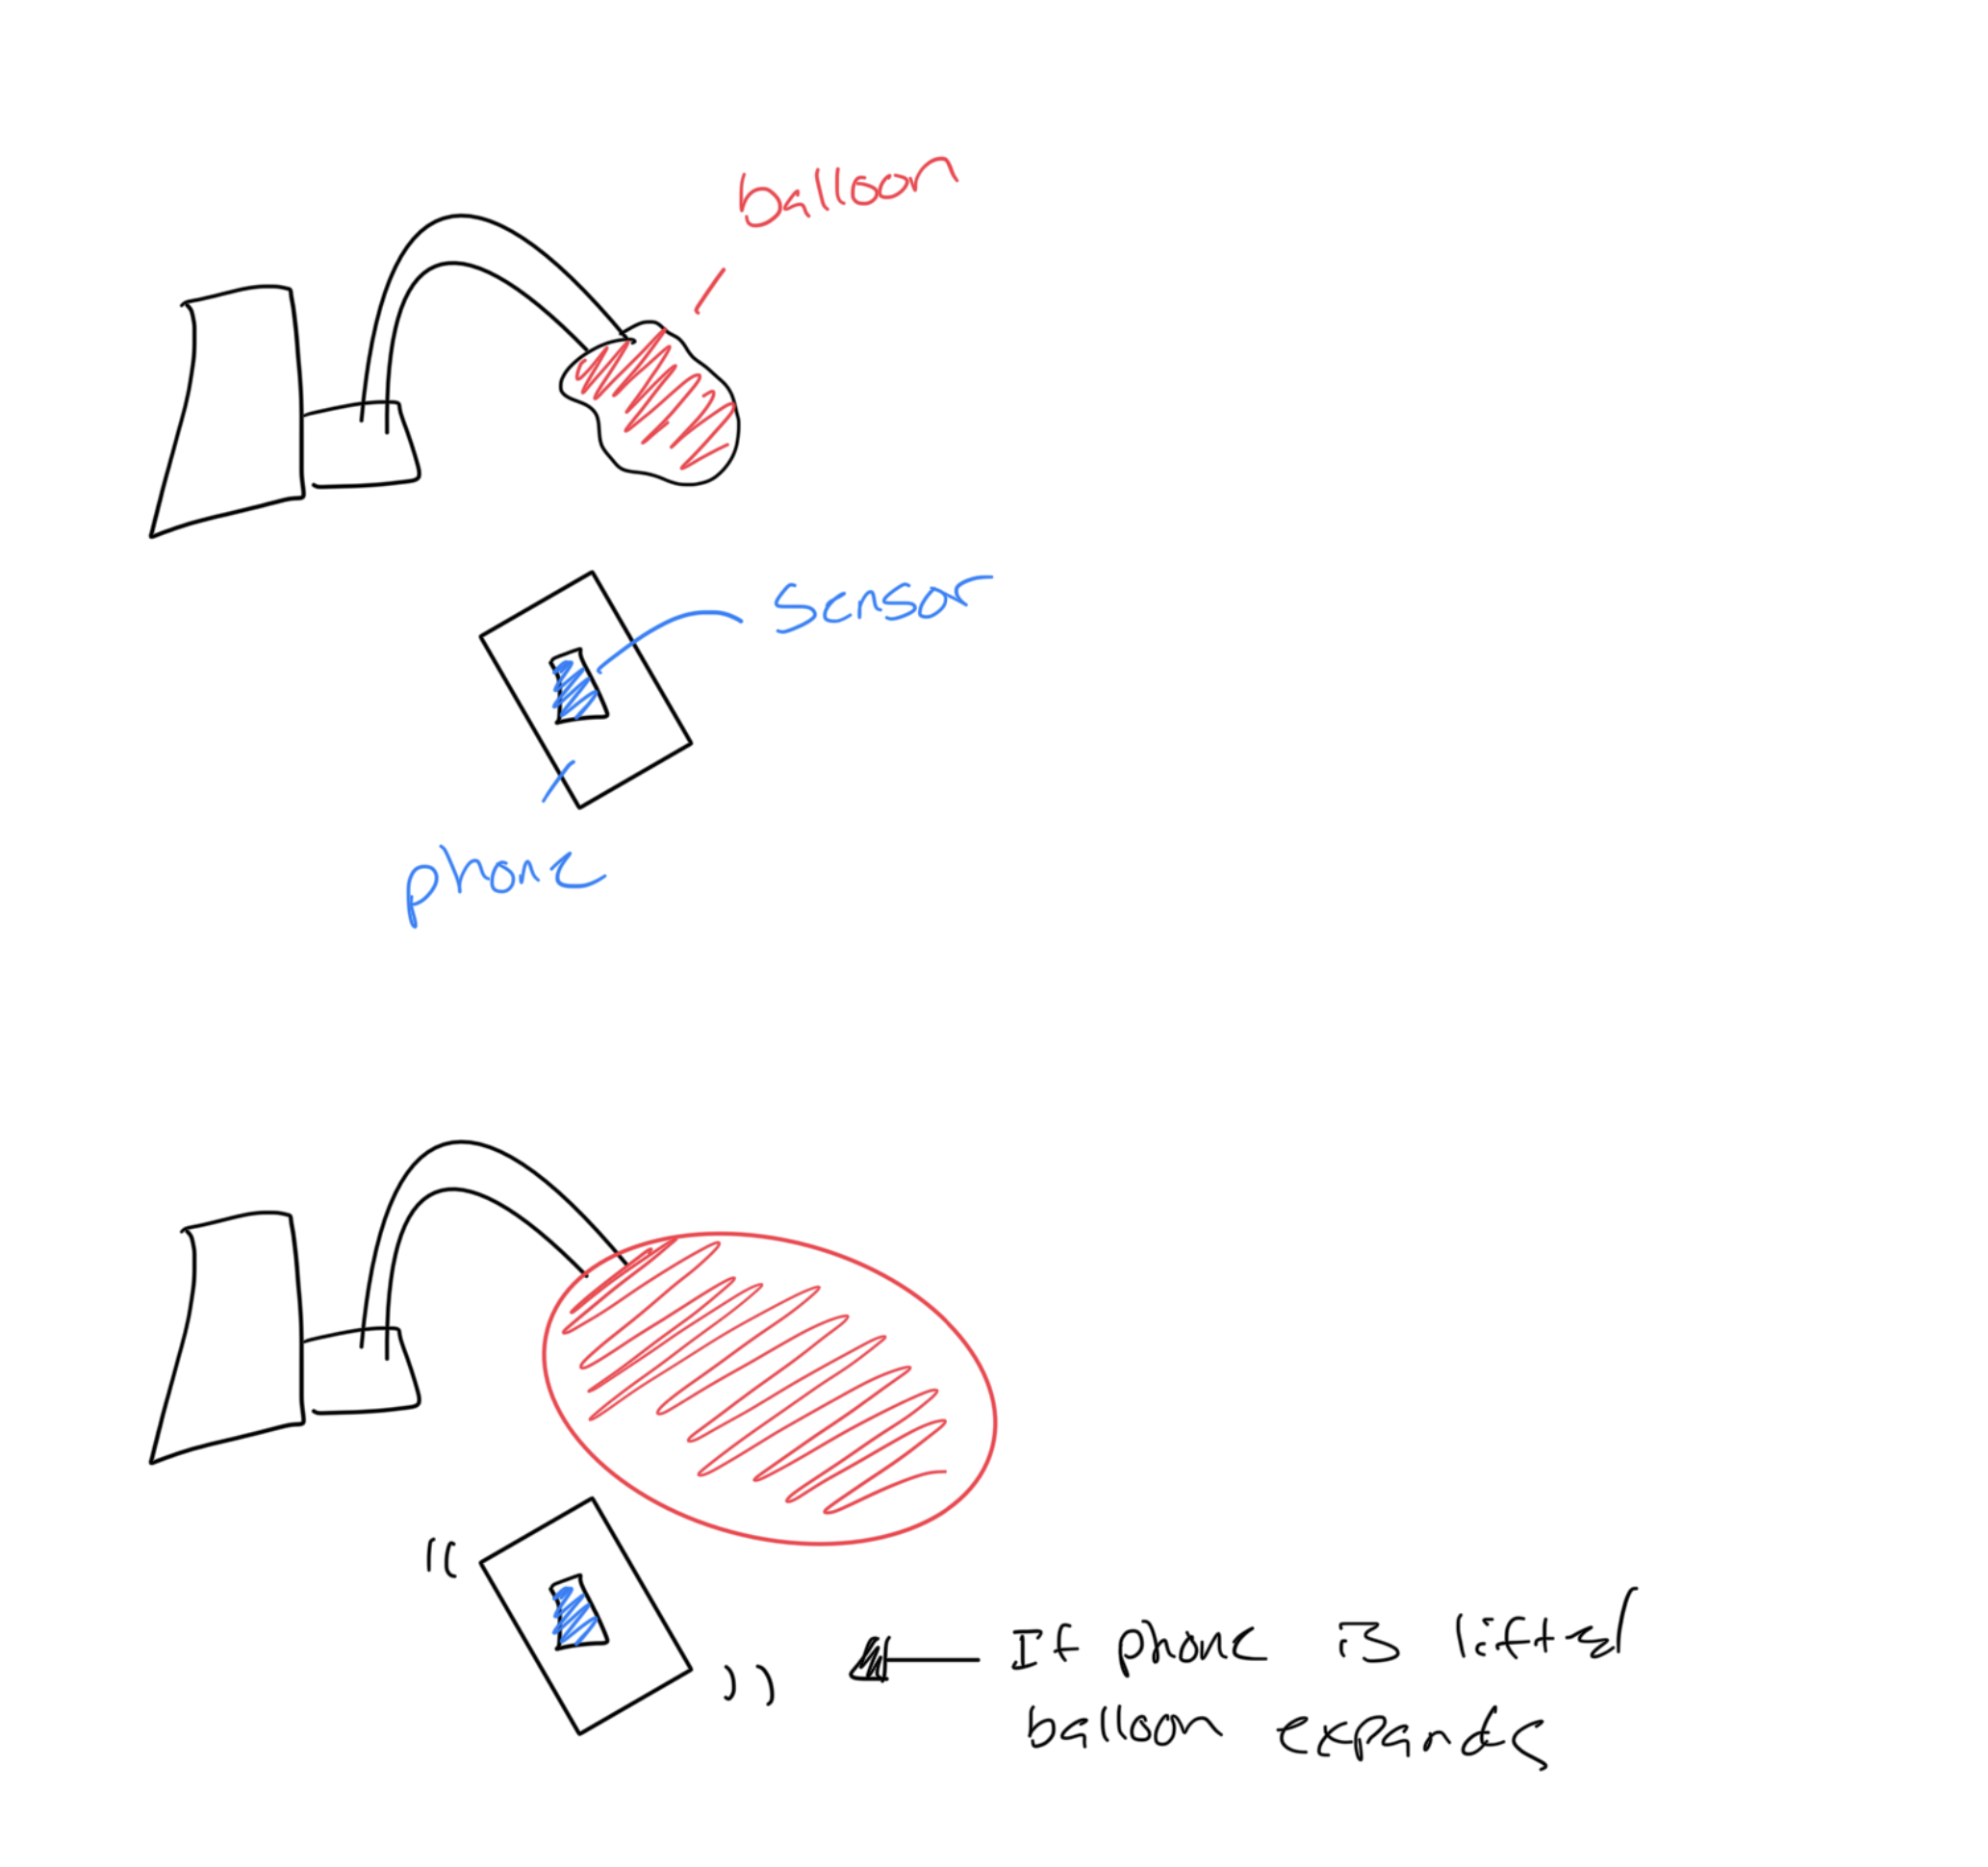 balloon
sensor
phone
If phone is lifted
balloon expands